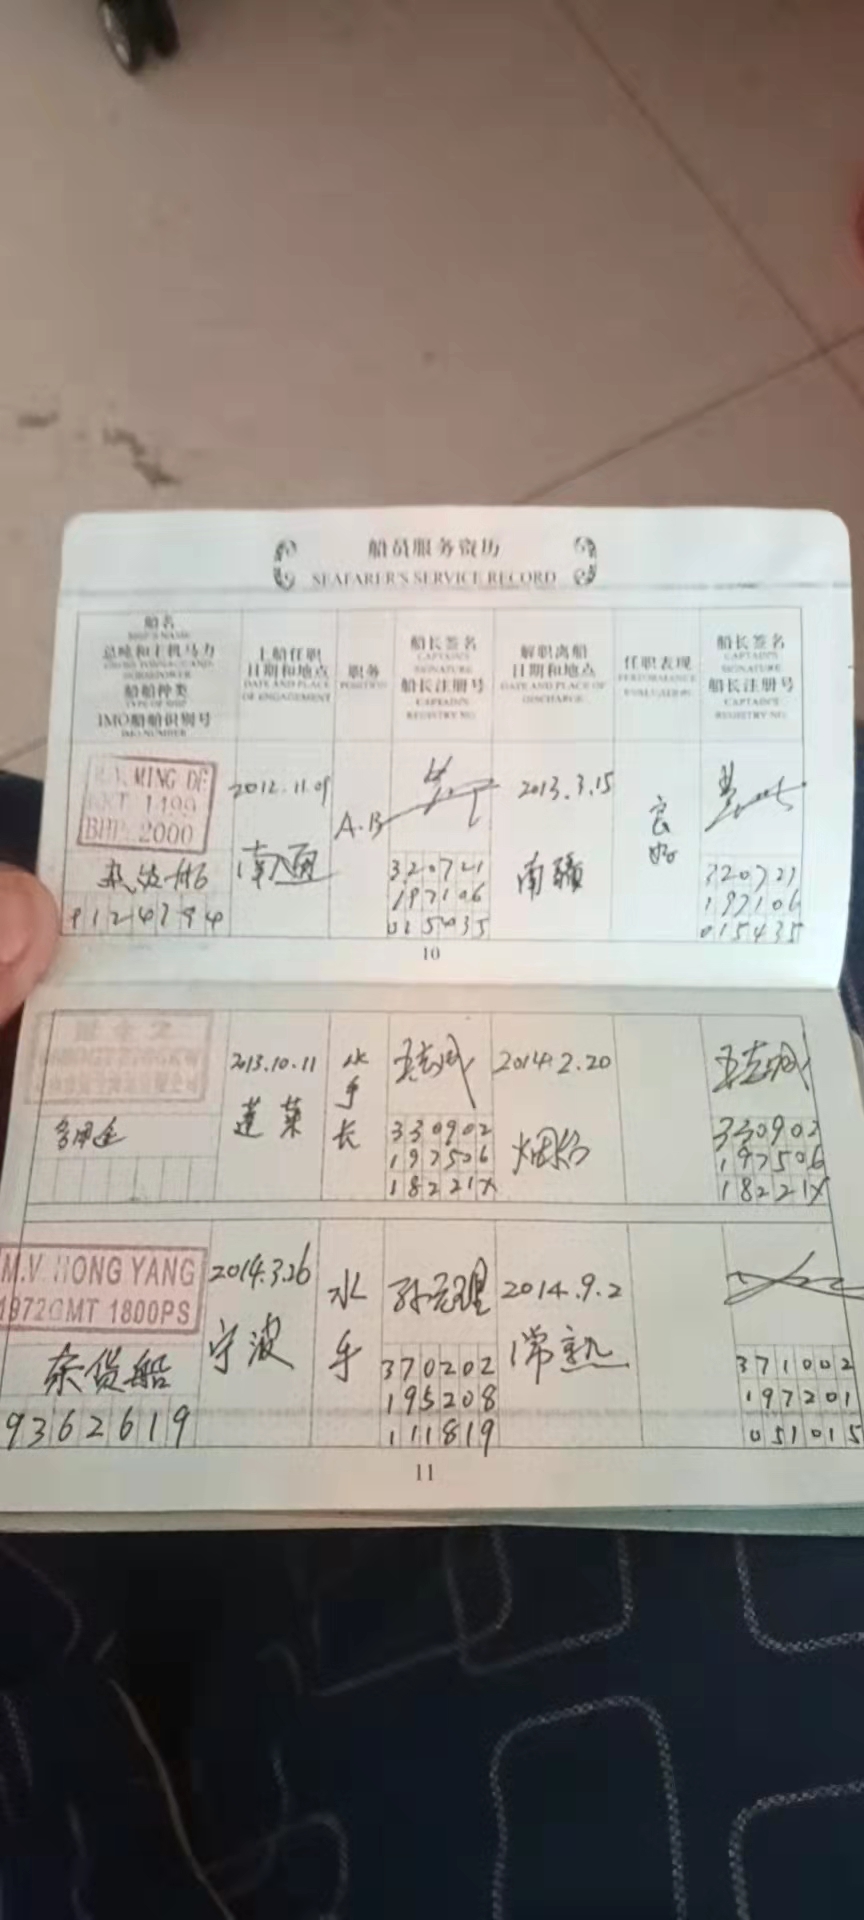 船员服务资历
SEAFARER'S SERVICE RECORD
船名
SHIP'S NAME
总吨和主机马力
船舶种类
TYPE OF SHIP
IMO船舶识别号
IMO NUMBER
上船任职
日期和地点
DATE AND PLACE
OF ENGAGEMENT
职务
POSITION
船长签名
CAPTAIN'S
SIGNATURE
船长注册号
CAPTAIN'S
REGISTRY NO.
解职离船
日期和地点
DATE AND PLACE OF
DISCHARGE
任职表现
PERFORMANCE
EVALUATION
船长签名
CAPTAIN'S
SIGNATURE
船长注册号
CAPTAIN'S
REGISTRY NO.
MING DE
1499
2000
杂货船
2012.11.09
南通
A.B
320721
197106
2013.3.15
南疆
良好
320721
197106
015435
10
多用途
2013.10.11
蓬莱
水手长
330902
197506
18221X
2014.2.20
烟台
330902
197506
18221X
M.V. HONG YANG
1972GMT 1800PS
杂货船
9362619
2014.3.26
宁波
水手
370202
195208
111819
2014.9.2
常熟
371002
197201
051015
11